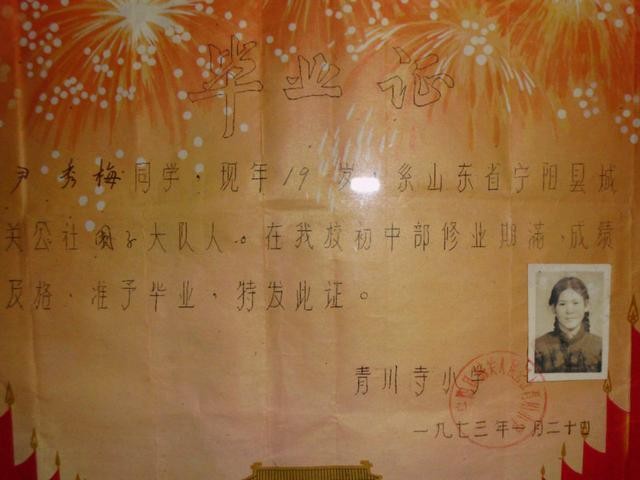 毕业证
尹秀梅同学,现年19岁,系山东省宁阳县城
关公社 大队人。在我校初中部修业期满,成绩
及格,准予毕业,特发此证。
青川寺小学
一九七三年一月二十四